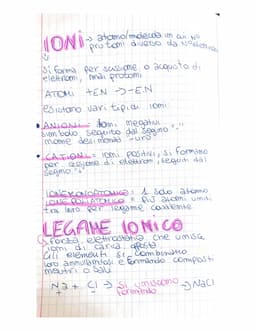 IONI → atomo/molecola in cui n°
protoni diverso da n° elettroni
si forma per cessione o acquisto di
elettroni, mai protoni
ATOMI +EN → -E.N
esistono vari tipi di ioni:
• ANIONI = ioni negativi
simbolo seguito dal segno "-"
nome desinenza "-uro"
• CATIONI = ioni positivi, si formano
per cessione di elettroni, seguiti dal
segno "+"
IONE MONOATOMICO = 1 solo atomo
IONE POLIATOMICO = più atomi uniti
tra loro per legame covalente
LEGAME IONICO
forza elettrostatica che unisce
ioni di carica opposta
Gli elementi si combinano
loro annullandosi e formando composti
neutri o sali
Na + Cl → si uniscono formando → NaCl